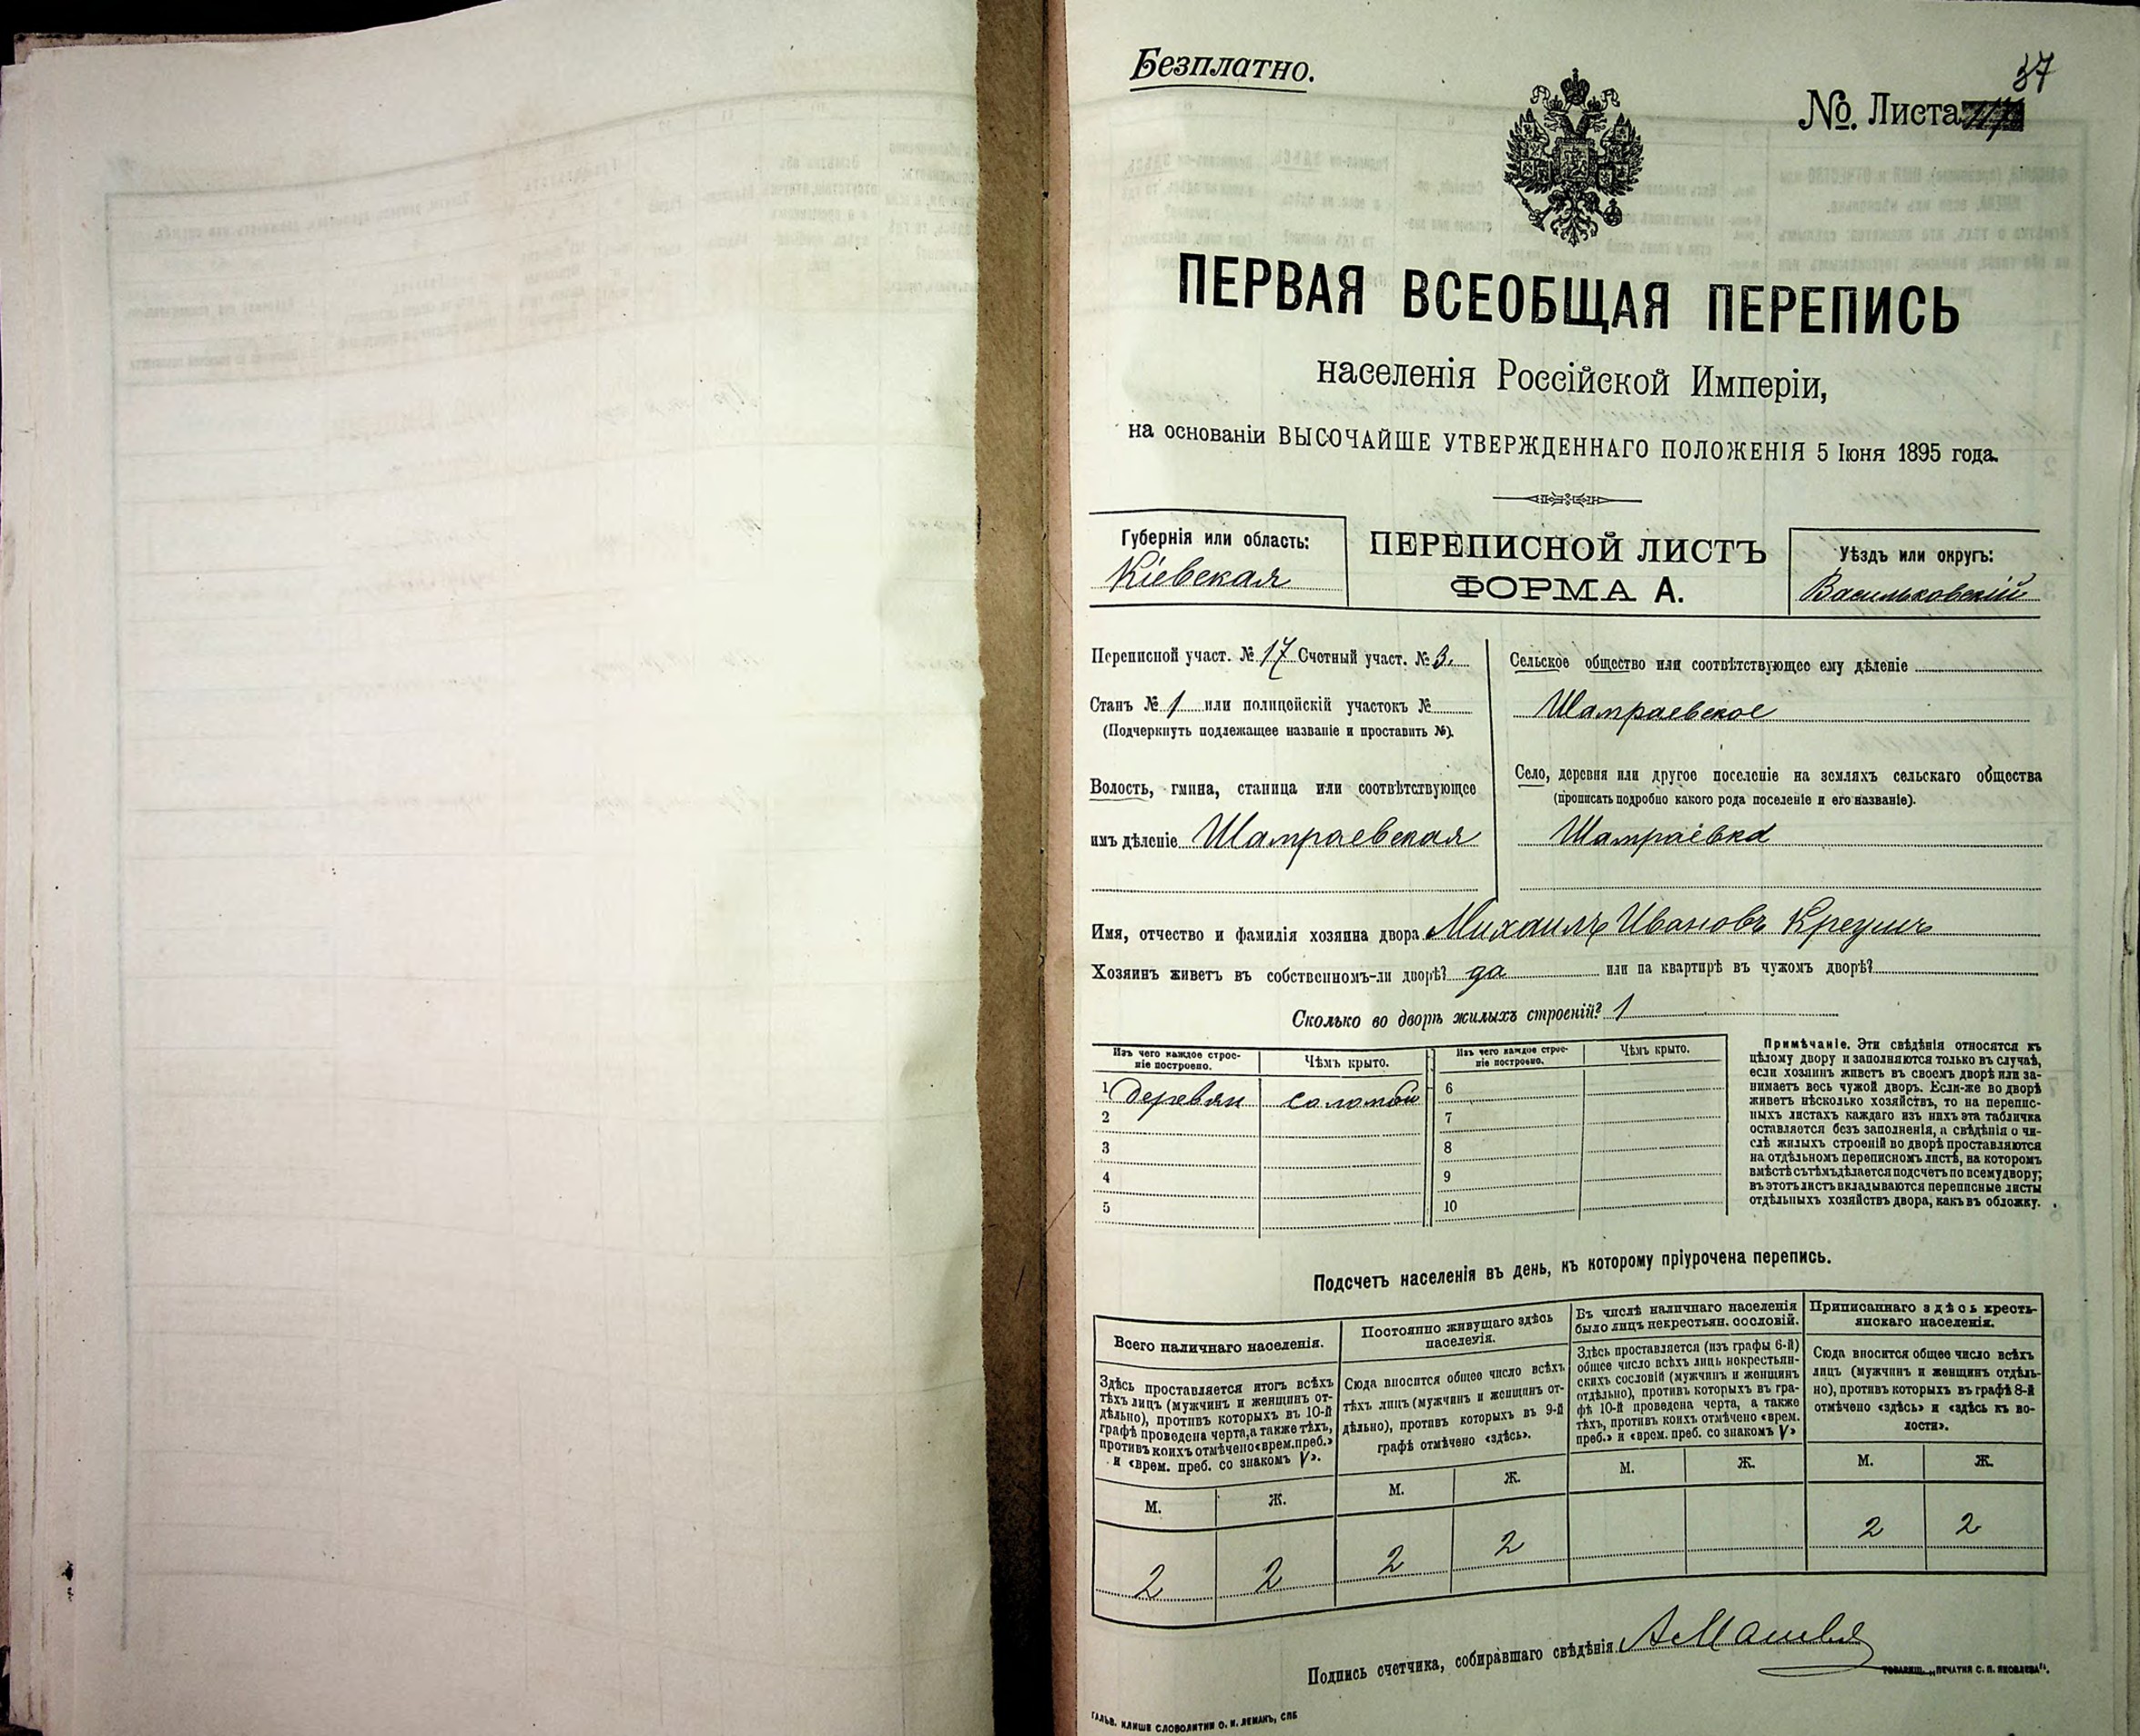 Безплатно.
37
№. Листа
ПЕРВАЯ ВСЕОБЩАЯ ПЕРЕПИСЬ
населенія Россійской Имперіи,
на основаніи ВЫСОЧАЙШЕ УТВЕРЖДЕННАГО ПОЛОЖЕНІЯ 5 Іюня 1895 года.
Губернія или область:
Кіевская
ПЕРЕПИСНОЙ ЛИСТЪ
ФОРМА А.
Уѣздъ или округъ:
Васильковскій
Переписной участ. № 17 Счетный участ. № 3.
Станъ № 1 или полицейскій участокъ №
(Подчеркнуть подлежащее названіе и проставить №).
Волость, гмина, станица или соотвѣтствующее
имъ дѣленіе Шамраевская
Сельское общество или соотвѣтствующее ему дѣленіе
Шамраевское
Село, деревня или другое поселеніе на земляхъ сельскаго общества
(прописать подробно какого рода поселеніе и его названіе).
Шамраевка
Имя, отчество и фамилія хозяина двора Михаилъ Ивановъ
Хозяинъ живетъ въ собственномъ-ли дворѣ? да или на квартирѣ въ чужомъ дворѣ?
Сколько во дворѣ жилыхъ строеній? 1
Изъ чего каждое строе-
ніе построено.
Чѣмъ крыто.
Изъ чего каждое строе-
ніе построено.
Чѣмъ крыто.
1 деревян соломой 6
2 7
3 8
4 9
5 10
Примѣчаніе. Эти свѣдѣнія относятся къ
цѣлому двору и заполняются только въ случаѣ,
если хозяинъ живетъ въ своемъ дворѣ или за-
нимаетъ весь чужой дворъ. Если-же во дворѣ
живетъ нѣсколько хозяйствъ, то на перепис-
ныхъ листахъ каждаго изъ нихъ эта табличка
оставляется безъ заполненія, а свѣдѣнія о чи-
слѣ жилыхъ строеній во дворѣ проставляются
на отдѣльномъ переписномъ листѣ, на которомъ
вмѣстѣ съ тѣмъ дѣлается подсчетъ по всему двору;
въ этотъ листъ вкладываются переписные листы
отдѣльныхъ хозяйствъ двора, какъ въ обложку.
Подсчетъ населенія въ день, къ которому пріурочена перепись.
Всего наличнаго населенія.
Здѣсь проставляется итогъ всѣхъ
тѣхъ лицъ (мужчинъ и женщинъ от-
дѣльно), противъ которыхъ въ 10-й
графѣ проведена черта, а также тѣхъ,
противъ коихъ отмѣчено «врем. преб.»
и «врем. преб. со знакомъ V».
М. Ж.
2 2
Постоянно живущаго здѣсь
населенія.
Сюда вносится общее число всѣхъ
тѣхъ лицъ (мужчинъ и женщинъ от-
дѣльно), противъ которыхъ въ 9-й
графѣ отмѣчено «здѣсь».
М. Ж.
2 2
Въ числѣ наличнаго населенія
было лицъ некрестьян. сословій.
Здѣсь проставляется (изъ графы 6-й)
общее число всѣхъ лицъ некрестьян-
скихъ сословій (мужчинъ и женщинъ
отдѣльно), противъ которыхъ въ гра-
фѣ 10-й проведена черта, а также
тѣхъ, противъ коихъ отмѣчено «врем.
преб.» и «врем. преб. со знакомъ V»
М. Ж.
Приписаннаго здѣсь кресть-
янскаго населенія.
Сюда вносится общее число всѣхъ
лицъ (мужчинъ и женщинъ отдѣль-
но), противъ которыхъ въ графѣ 8-й
отмѣчено «здѣсь» и «здѣсь къ во-
лости».
М. Ж.
2 2
Подпись счетчика, собиравшаго свѣдѣнія
ТОВАРИЩ. „ПЕЧАТНЯ С. П. ЯКОВЛЕВА“.
ГАЛЬВ. КЛИШЕ СЛОВОЛИТНИ О. И. ЛЕМАНЪ, СПБ